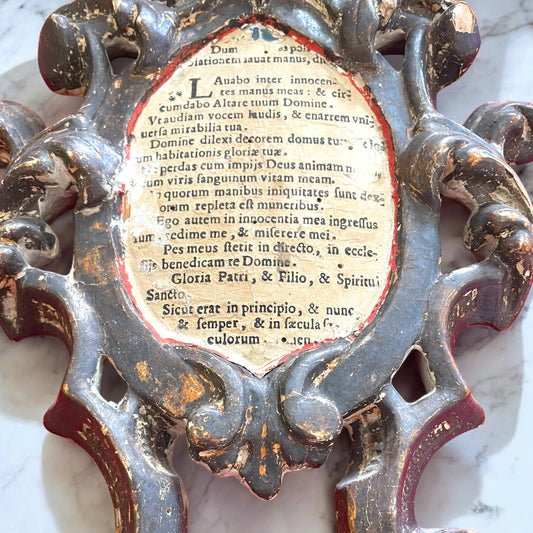 Dum
lauat manus, di
LAvabo inter innocen
tes manus meas: & cir
cumdabo Altare tuum Domine.
Vt audiam vocem laudis, & enarrem vni
uersa mirabilia tua.
Domine dilexi decorem domus
um habitationis gloriæ tuæ.
perdas cum impijs Deus animam
um viris sanguinum vitam meam.
quorum manibus iniquitates sunt dex
orum repleta est muneribus.
Ego autem in innocentia mea ingressus
sum, redime me, & miserere mei.
Pes meus stetit in directo, in eccle
sijs benedicam te Domine.
Gloria Patri, & Filio, & Spiritui
Sancto
Sicut erat in principio, & nunc
& semper, & in sæcula
culorum